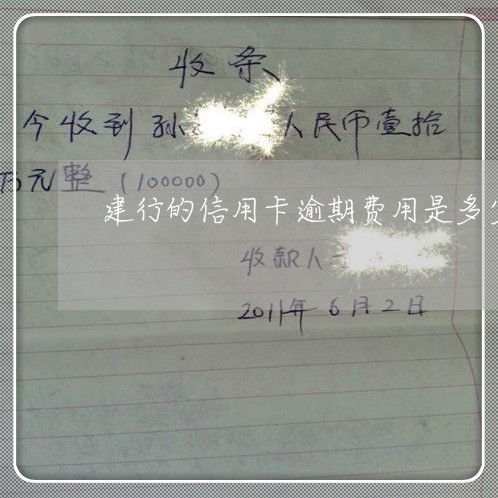 收条
今收到孙 人民币壹拾
万元整（100000）
建行的信用卡逾期费用是多少
收款人
2011年6月2日